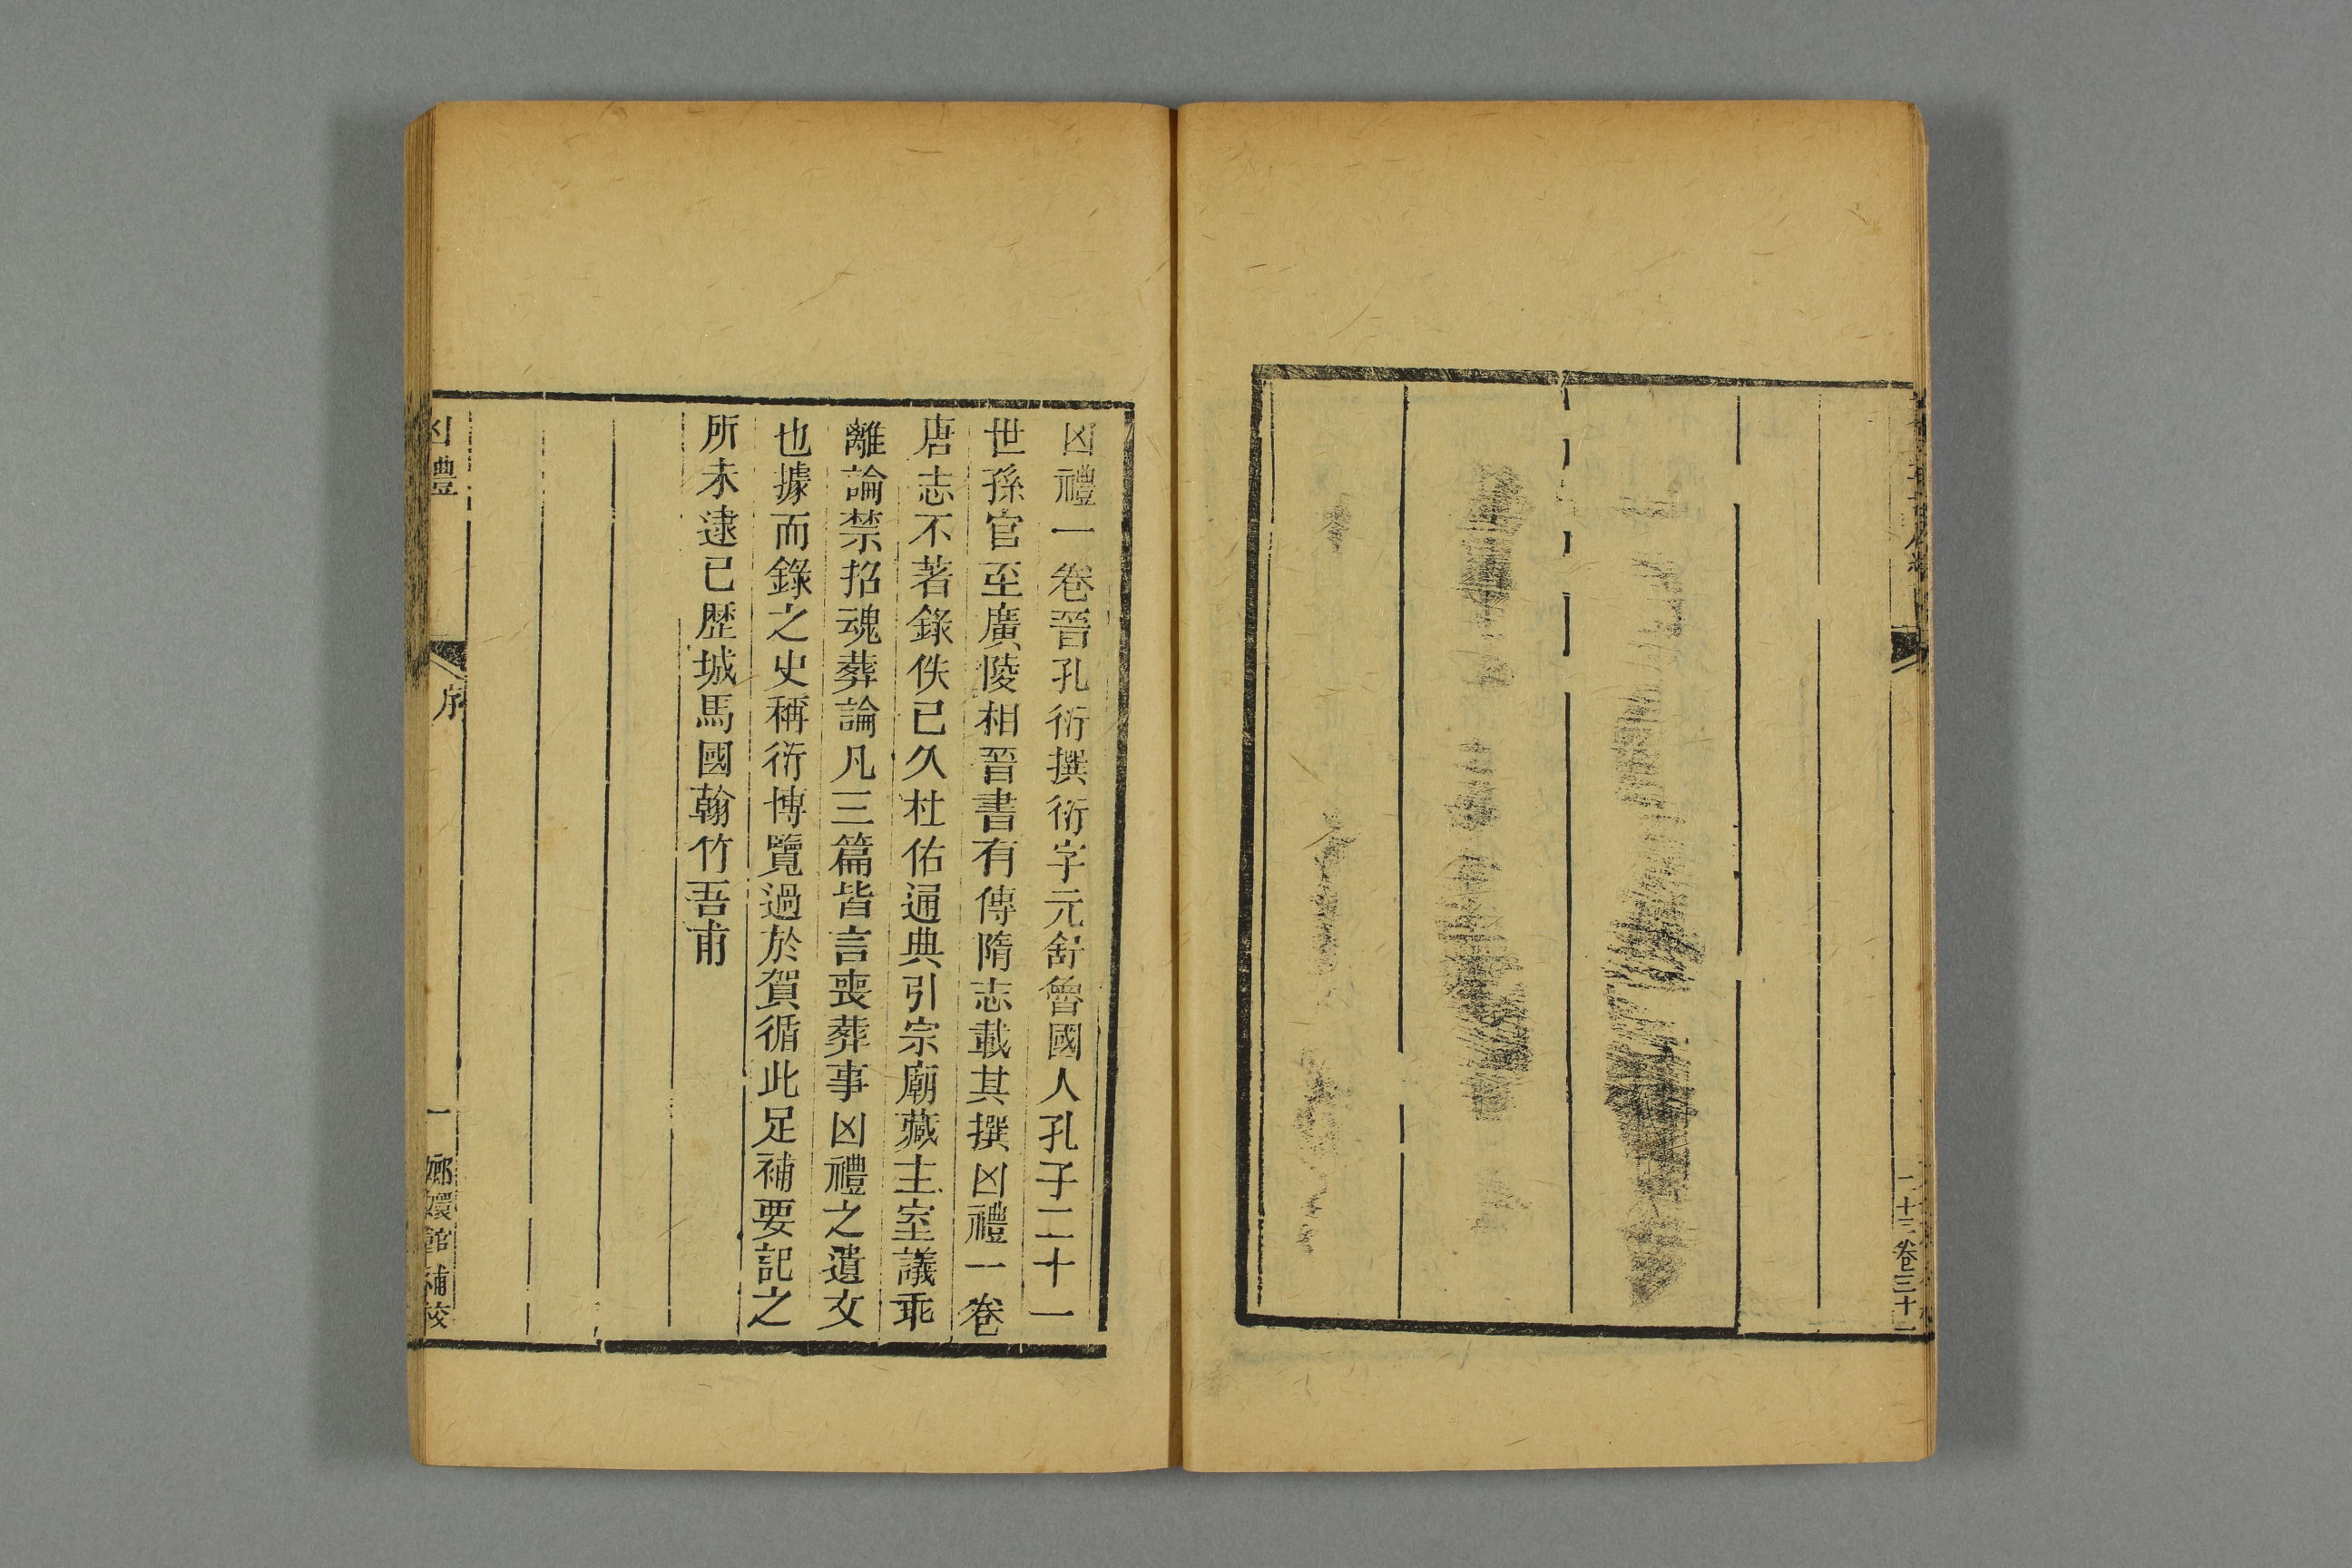 二十三卷三十一
凶禮一卷晉孔衍撰衍字元舒魯國人孔子二十一
世孫官至廣陵相晉書有傳隋志載其撰凶禮一卷
唐志不著錄佚已久杜佑通典引宗廟藏主室議乖
離論禁招魂葬論凡三篇皆言喪葬事凶禮之遺文
也據而錄之史稱衍博覽過於賀循此足補要記之
所未逮已歷城馬國翰竹吾甫
凶禮
序
一
嫏嬛館補校